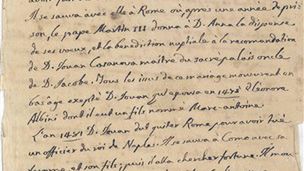 Il se sauva avec elle à Rome où après une année de pri-
son, le pape Martin III donna à D. Anna la dispense
de ses voeux, et la bénédiction nuptiale à la recomandation
de D. Jouan Casanova maître du sacré palais oncle
de D. Jacobe. Tous les issus de ce mariage moururent en
bas âge excepté D. Jouan qui épousa en 1475 Eleonora
Albini dont il eut un fils nommé Marc-antoine
L'an 1481 D. Jouan dut quiter Rome pour avoir tué
un officier du roi de Naples. Il se sauva à Como avec sa
femme et son fils; puis il alla chercher fortune. Il mou